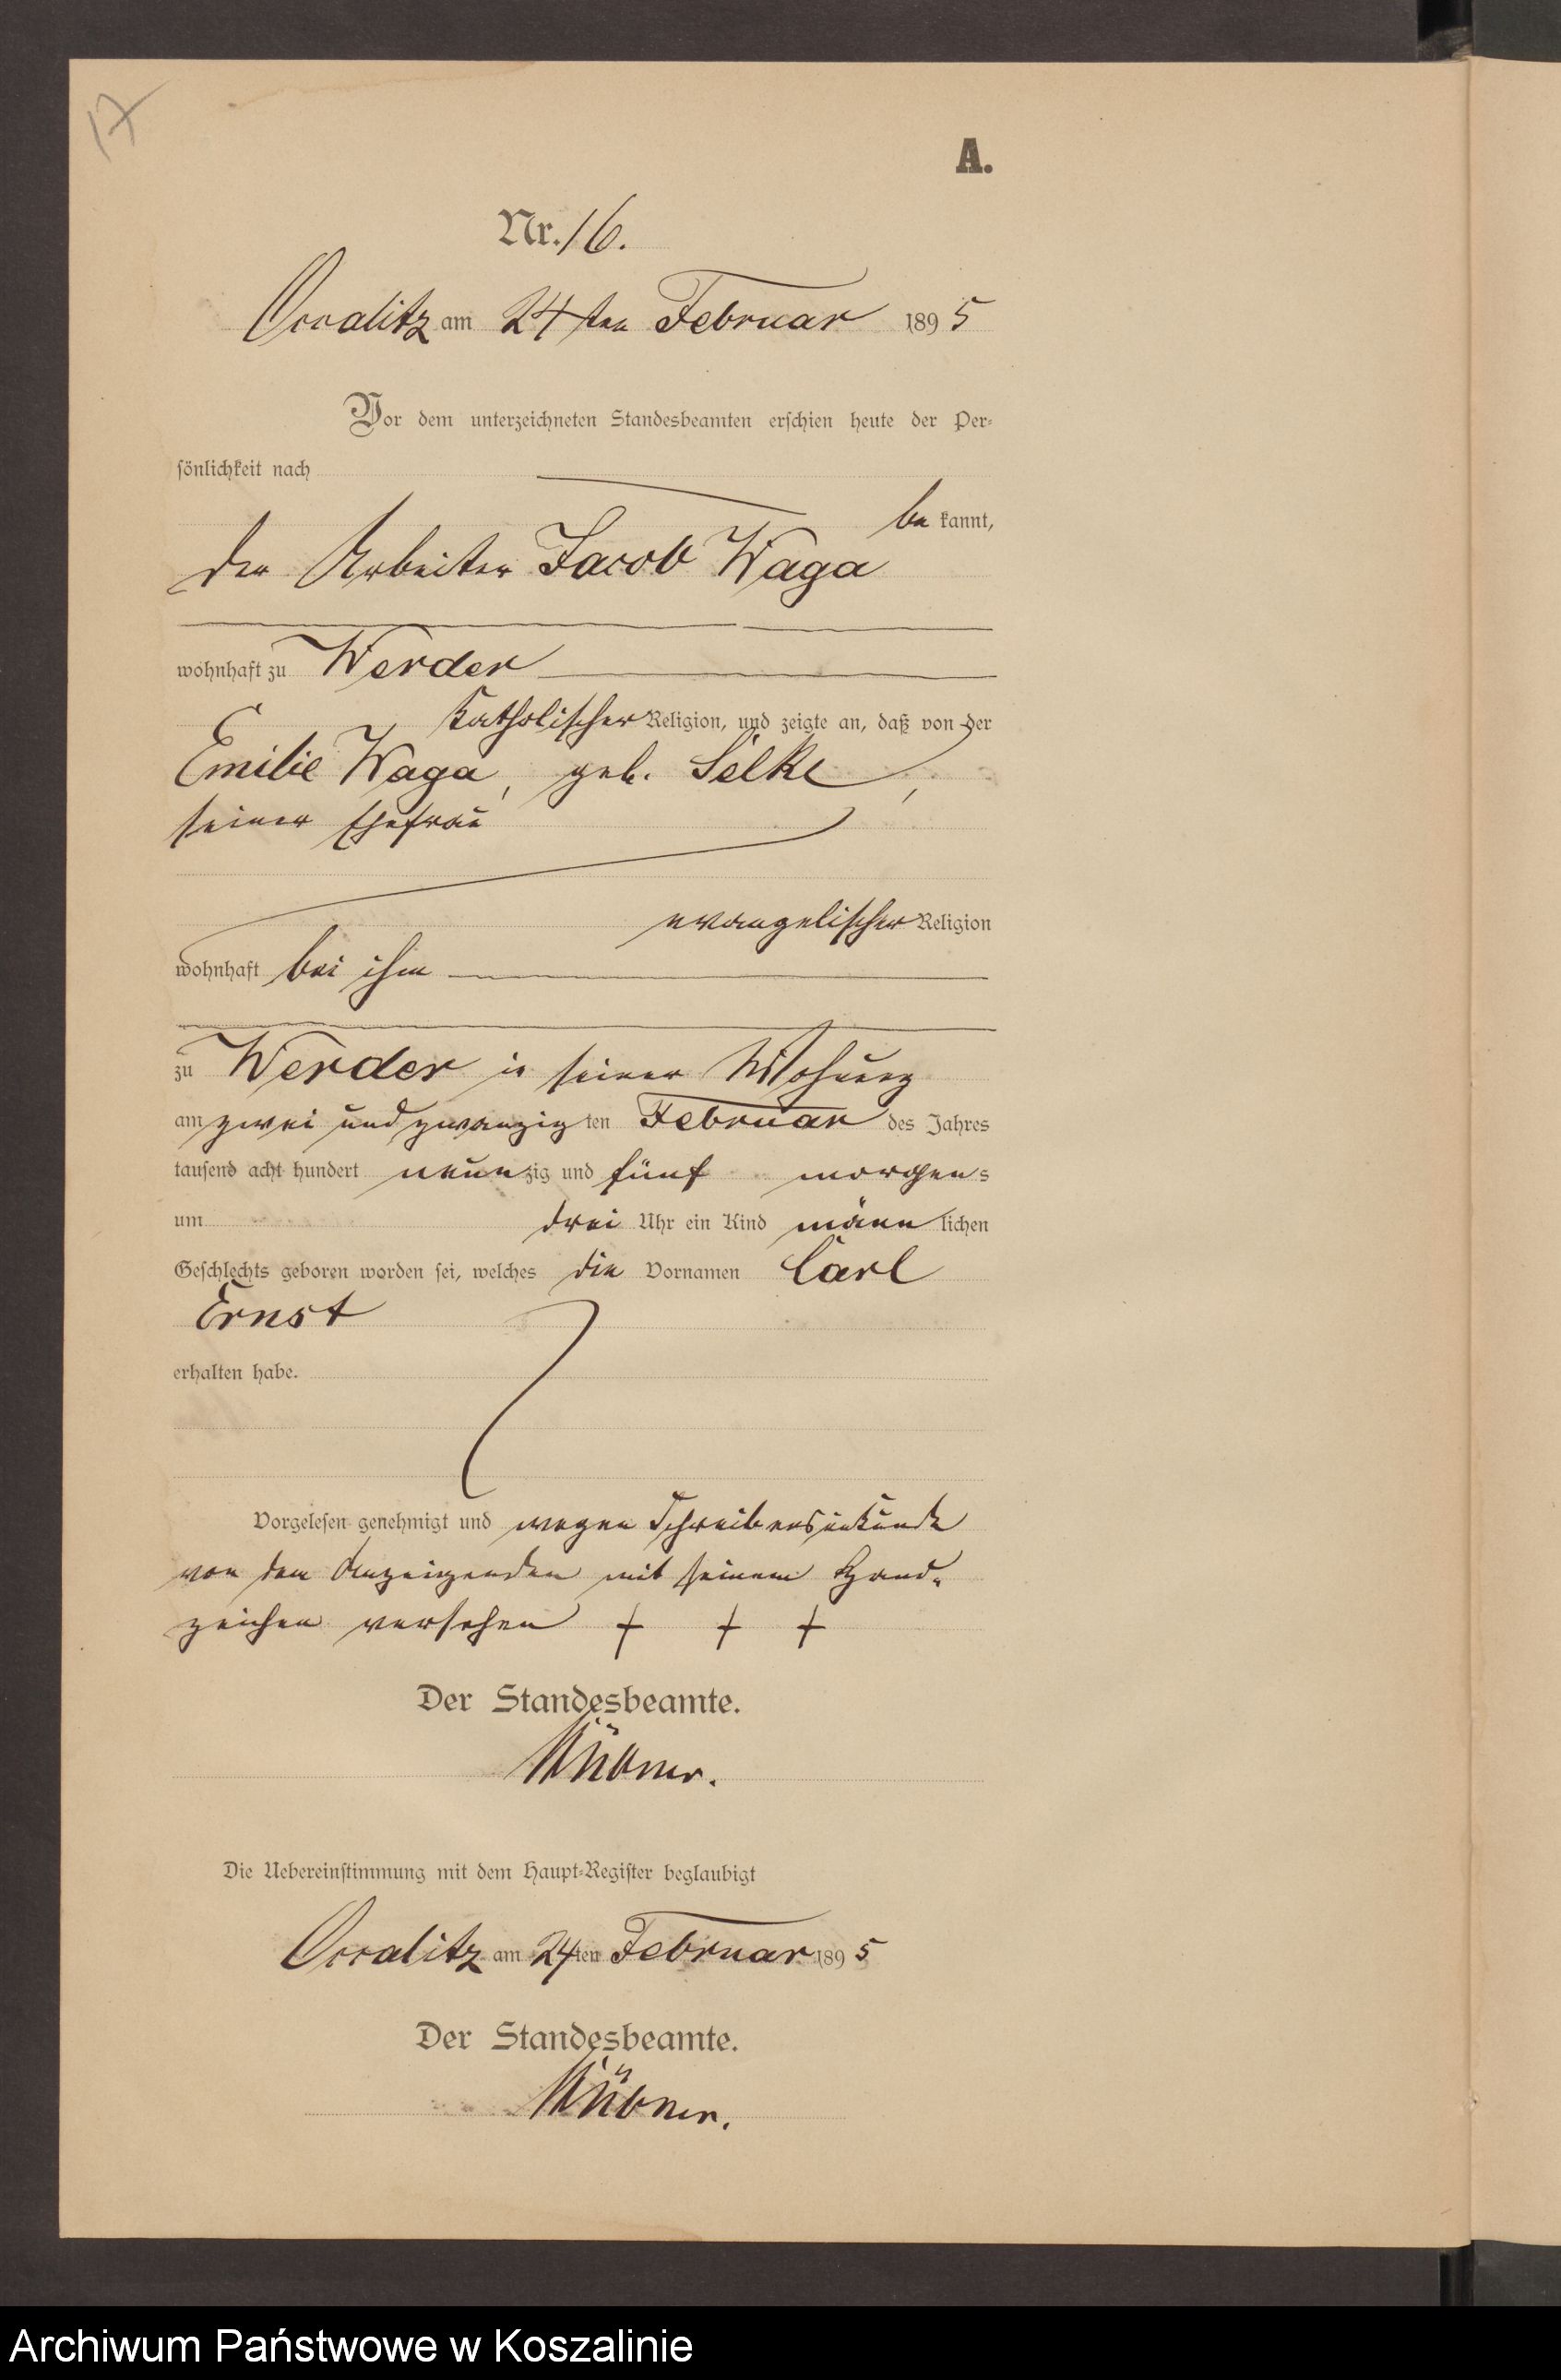 17
A.
Nr. 16.
Occalitz am 24ten Februar 1895
Vor dem unterzeichneten Standesbeamten erschien heute der Per-
sönlichkeit nach
be kannt,
der Arbeiter Jacob Waga
wohnhaft zu Werder
katholischer Religion, und zeigte an, daß von der
Emilie Waga, geb. Selke,
seiner Ehefrau
evangelischer Religion
wohnhaft bei ihm
zu Werder in seiner Wohnung
am zwei und zwanzig ten Februar des Jahres
tausend acht hundert neunzig und fünf morgens
um drei Uhr ein Kind männlichen
Geschlechts geboren worden sei, welches die Vornamen Carl
Ernst
erhalten habe.
Vorgelesen genehmigt und wegen Schreibensunkunde
von dem Anzeigenden mit seinem Hand-
zeichen versehen + + +
Der Standesbeamte.
Die Uebereinstimmung mit dem Haupt-Register beglaubigt
Occalitz am 24ten Februar 1895
Der Standesbeamte.
Archiwum Państwowe w Koszalinie